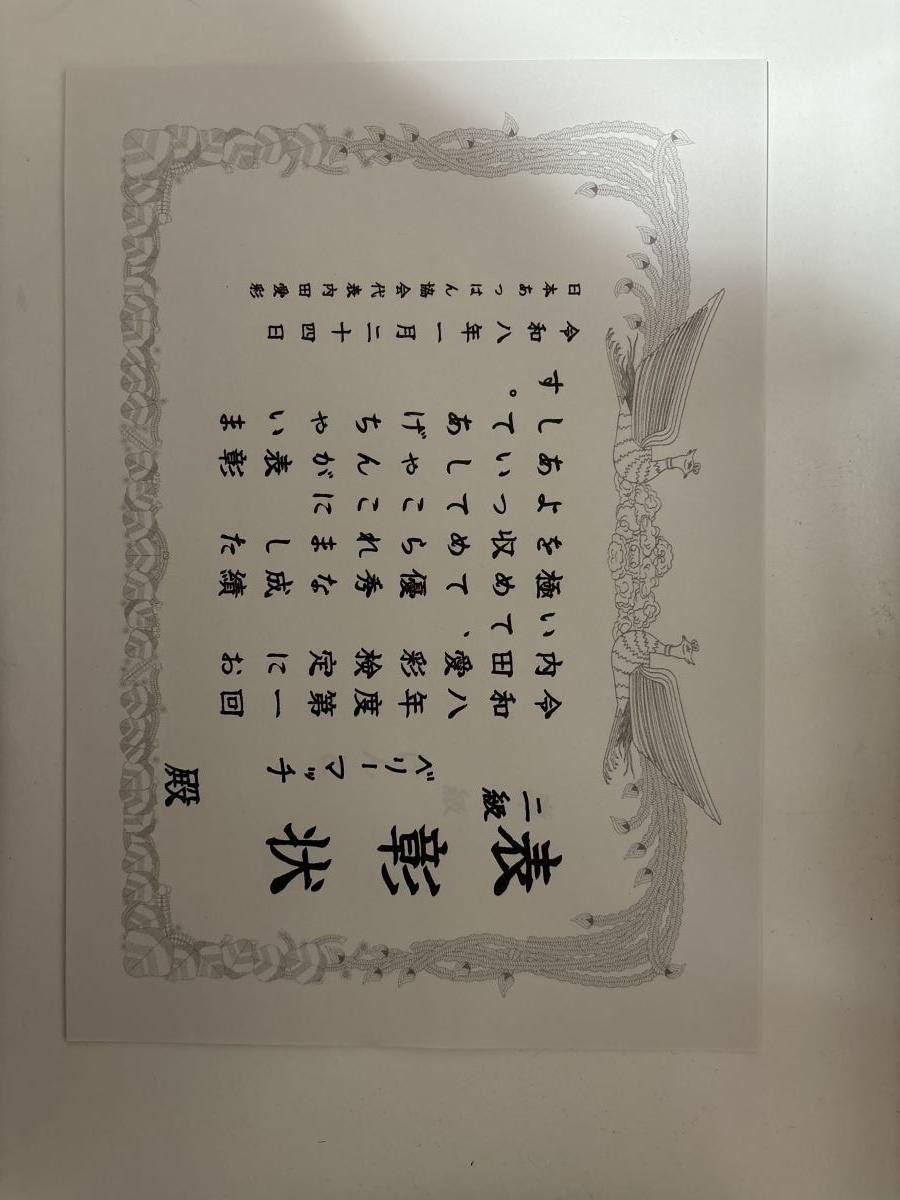 表彰状
二級
ベリーマッチ
殿
令和八年度第一回
内田愛彩検定にお
いて、
極めて優秀な成績
を収められました
よってここに
あいしゃんが表彰
してあげちゃいま
す。
令和八年一月二十四日
日本あっはん協会代表内田愛彩